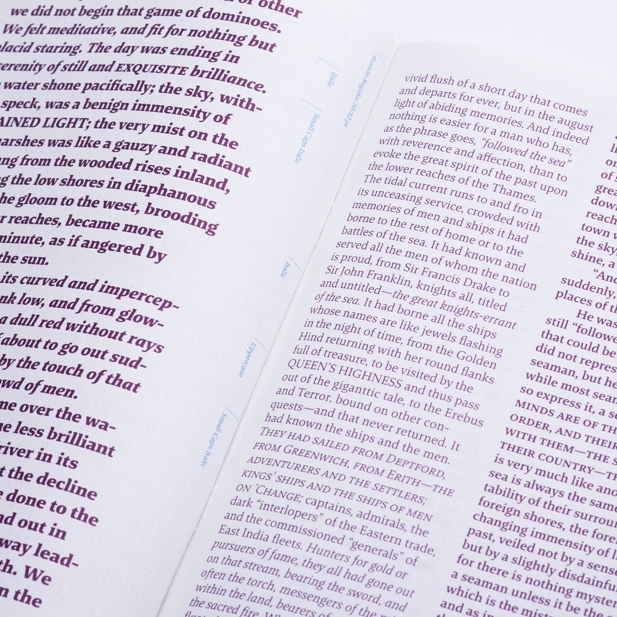 d of other
we did not begin that game of dominoes.
We felt meditative, and fit for nothing but
placid staring. The day was ending in
serenity of still and EXQUISITE brilliance.
water shone pacifically; the sky, with-
speck, was a benign immensity of
AINED LIGHT; the very mist on the
marshes was like a gauzy and radiant
ng from the wooded rises inland,
g the low shores in diaphanous
he gloom to the west, brooding
r reaches, became more
minute, as if angered by
the sun.
its curved and impercep-
nk low, and from glow-
a dull red without rays
about to go out sud-
by the touch of that
owd of men.
me over the wa-
ne less brilliant
river in its
t the decline
done to the
ad out in
way lead-
th. We
n the
Italic
Small Caps Italic
Italic
Uppercase
Small Caps Italic
vivid flush of a short day that comes
and departs for ever, but in the august
light of abiding memories. And indeed
nothing is easier for a man who has,
as the phrase goes, “followed the sea”
with reverence and affection, than to
evoke the great spirit of the past upon
the lower reaches of the Thames.
The tidal current runs to and fro in
its unceasing service, crowded with
memories of men and ships it had
borne to the rest of home or to the
battles of the sea. It had known and
served all the men of whom the nation
is proud, from Sir Francis Drake to
Sir John Franklin, knights all, titled
and untitled—the great knights-errant
of the sea. It had borne all the ships
whose names are like jewels flashing
in the night of time, from the Golden
Hind returning with her round flanks
full of treasure, to be visited by the
QUEEN’S HIGHNESS and thus pass
out of the gigantic tale, to the Erebus
and Terror, bound on other con-
quests—and that never returned. It
had known the ships and the men.
THEY HAD SAILED FROM DEPTFORD,
FROM GREENWICH, FROM ERITH—THE
ADVENTURERS AND THE SETTLERS;
KINGS’ SHIPS AND THE SHIPS OF MEN
ON ’CHANGE; captains, admirals, the
dark “interlopers” of the Eastern trade,
and the commissioned “generals” of
East India fleets. Hunters for gold or
pursuers of fame, they all had gone out
on that stream, bearing the sword, and
often the torch, messengers of the
within the land, bearers of
the sacred fire.
of s
grea
dow
reach
town
the sky
shine, a
“And
suddenly,
places of t
He was
still “follow
that could be
did not repres
seaman, but he
while most sea
so express it, a s
MINDS ARE OF TH
ORDER, AND THEIR
WITH THEM—THE S
THEIR COUNTRY—T
is very much like ano
sea is always the same
tability of their surrou
foreign shores, the fore
changing immensity of l
past, veiled not by a sens
but by a slightly disdainfu
for there is nothing myster
a seaman unless it be the s
which is the mist
and as in